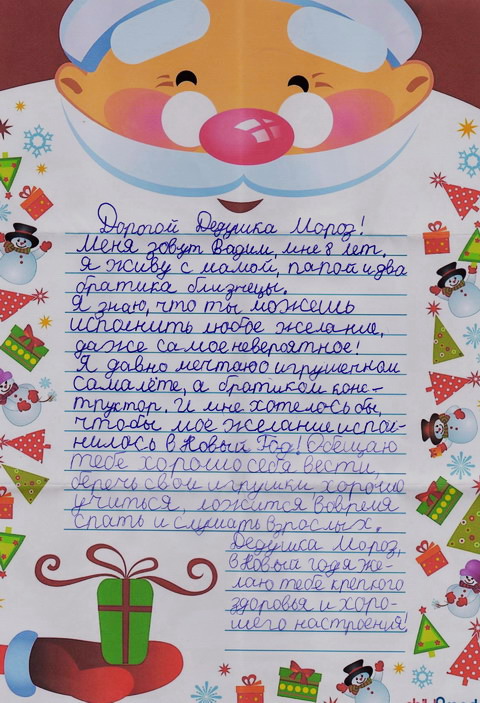 Дорогой Дедушка Мороз!
Меня зовут Вадим, мне 8 лет.
Я живу с мамой, папой и два
братика близнецы.
Я знаю, что ты можешь
исполнить любое желание,
даже самое невероятное!
Я давно мечтаю о игрушечном
самалёте, а братикам конс-
труктор. И мне хотелось бы,
чтобы мое желание испол-
нилось в Новый Год! Обещаю
тебе хорошо себя вести,
беречь свои игрушки хорошо
учиться, ложится вовремя
спать и слушать взрослых.
Дедушка Мороз,
в Новый год я же-
лаю тебе крепкого
здоровья и хоро-
шего настроения!